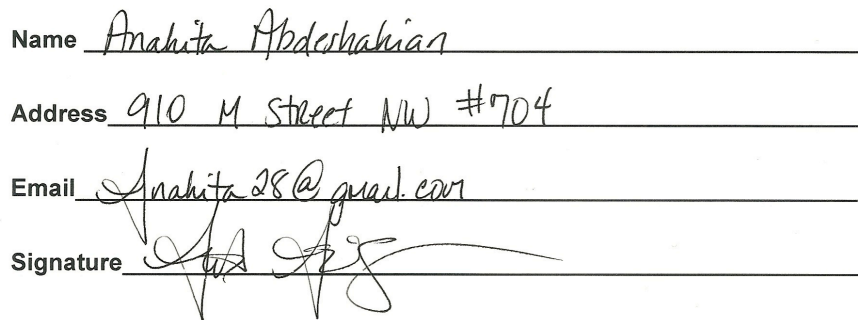 Name Anahita Abdeshahian
Address 910 M Street NW #704
Email Anahita28@gmail.com
Signature